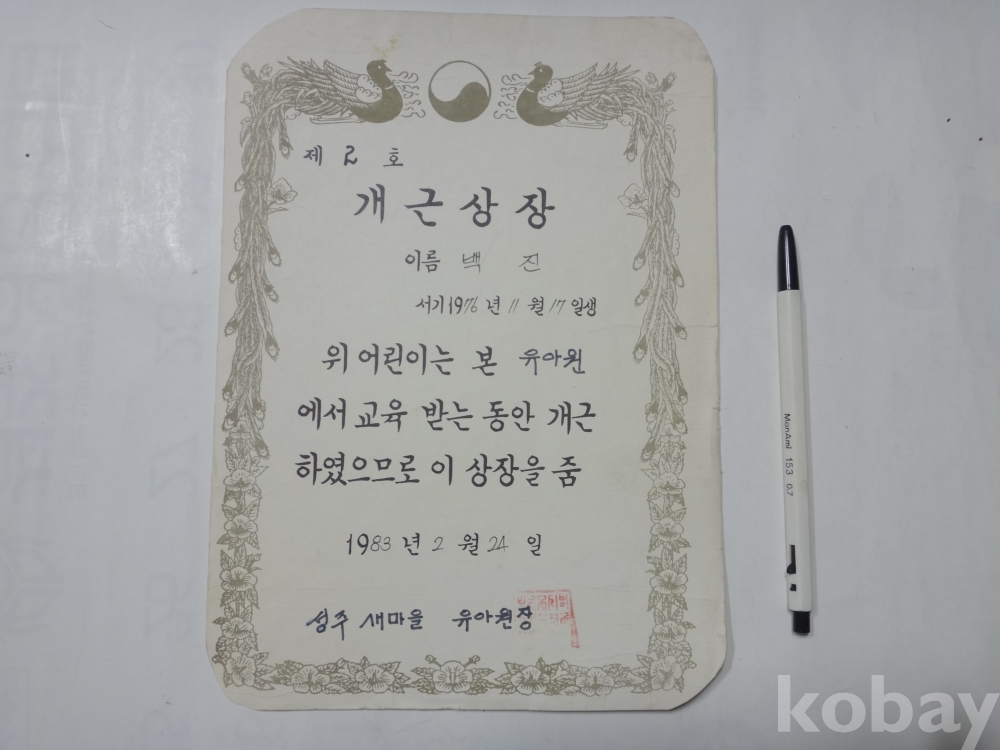 제 2 호
개근상장
이름 백 진
서기 1976 년 11 월 17 일생
위 어린이는 본 유아원
에서 교육 받는 동안 개근
하였으므로 이 상장을 줌
1983 년 2 월 24 일
성주 새마을 유아원장
MonAmi 153 0.7
kobay